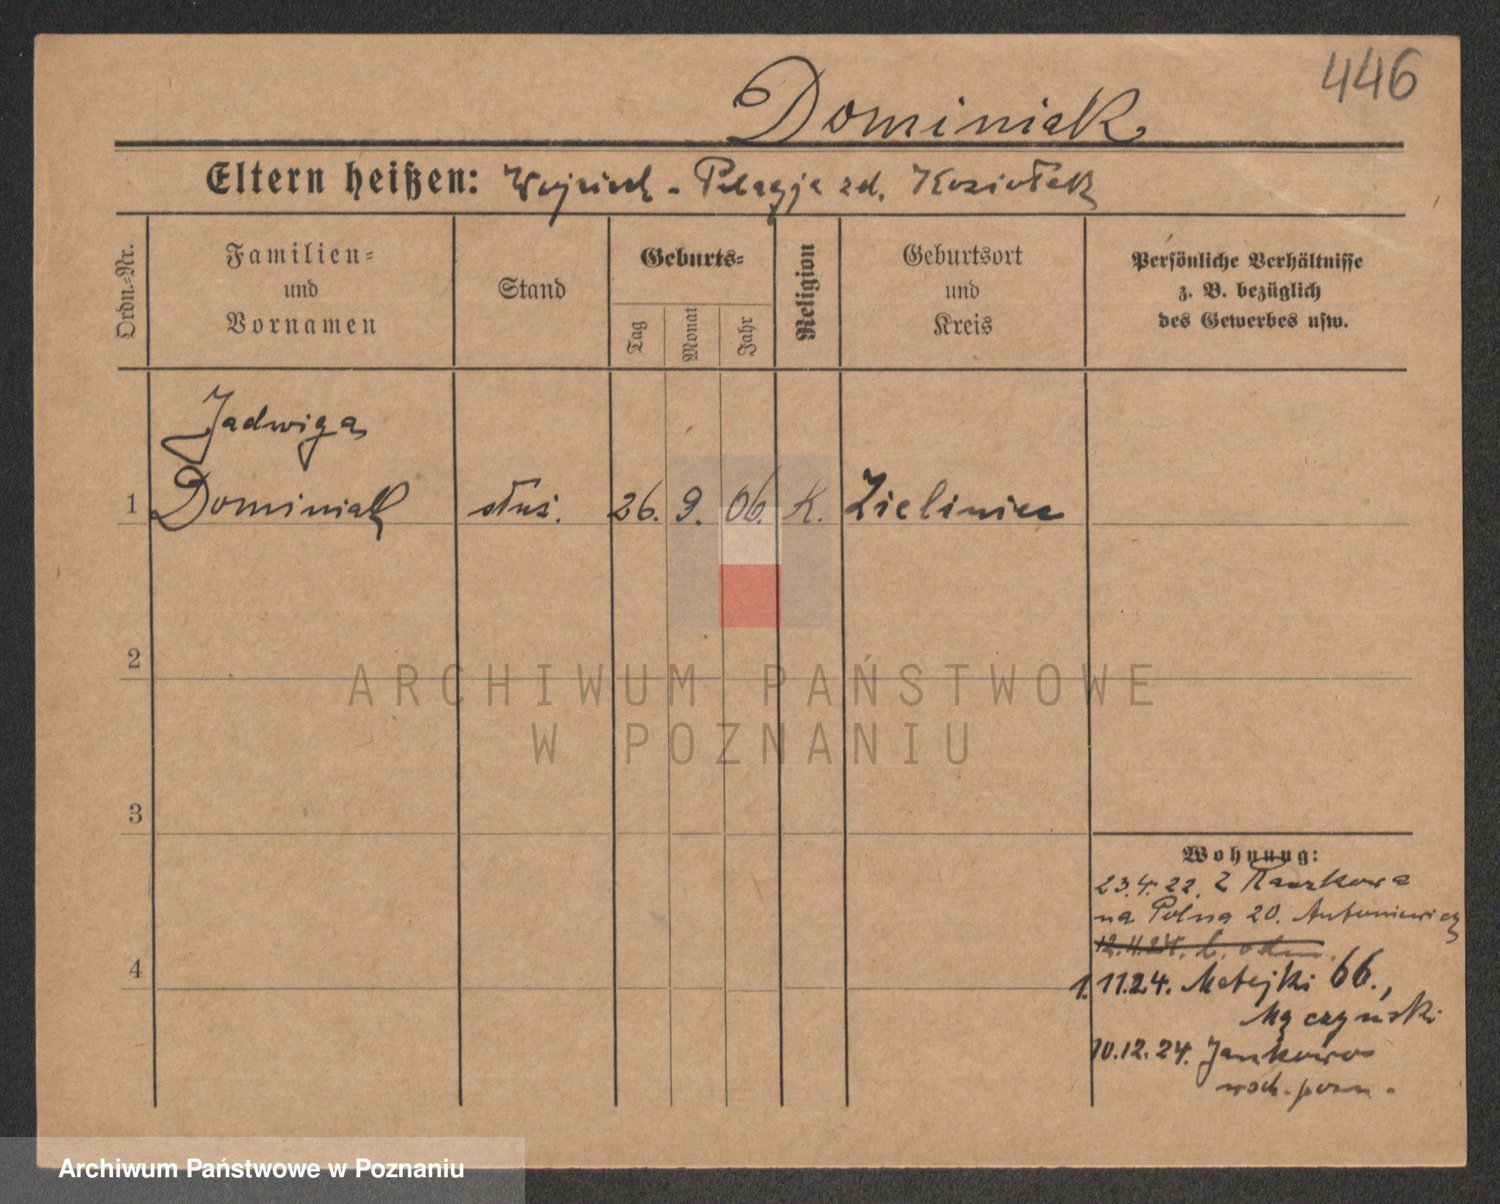 446
Dominiak
Eltern heißen: Wojciech - Pelagja zd. Koziołek
Ordn.-Nr.
Familien-
und
Vornamen
Stand
Geburts-
Tag
Monat
Jahr
Religion
Geburtsort
und
Kreis
Persönliche Verhältnisse
z. B. bezüglich
des Gewerbes usw.
Jadwiga
1 Dominiak służ. 26. 9. 06. K. Zieliniec
2
ARCHIWUM PAŃSTWOWE
W POZNANIU
3
Wohnung:
23.4.22. z Raszkowa
na Polna 20. Antoniewicz
4
12.11.24.
1.11.24. Matejki 66.,
Mączyński
10.12.24. Jankowo
wsch. pozn.
Archiwum Państwowe w Poznaniu